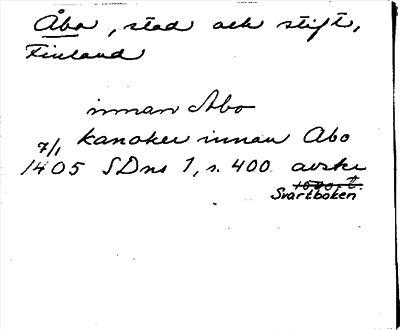 Åbo, stad och stift,
Finland
innan Abo
7/1 kanoker innan Abo
1405 SDns 1, s. 400 avskr
Svartboken